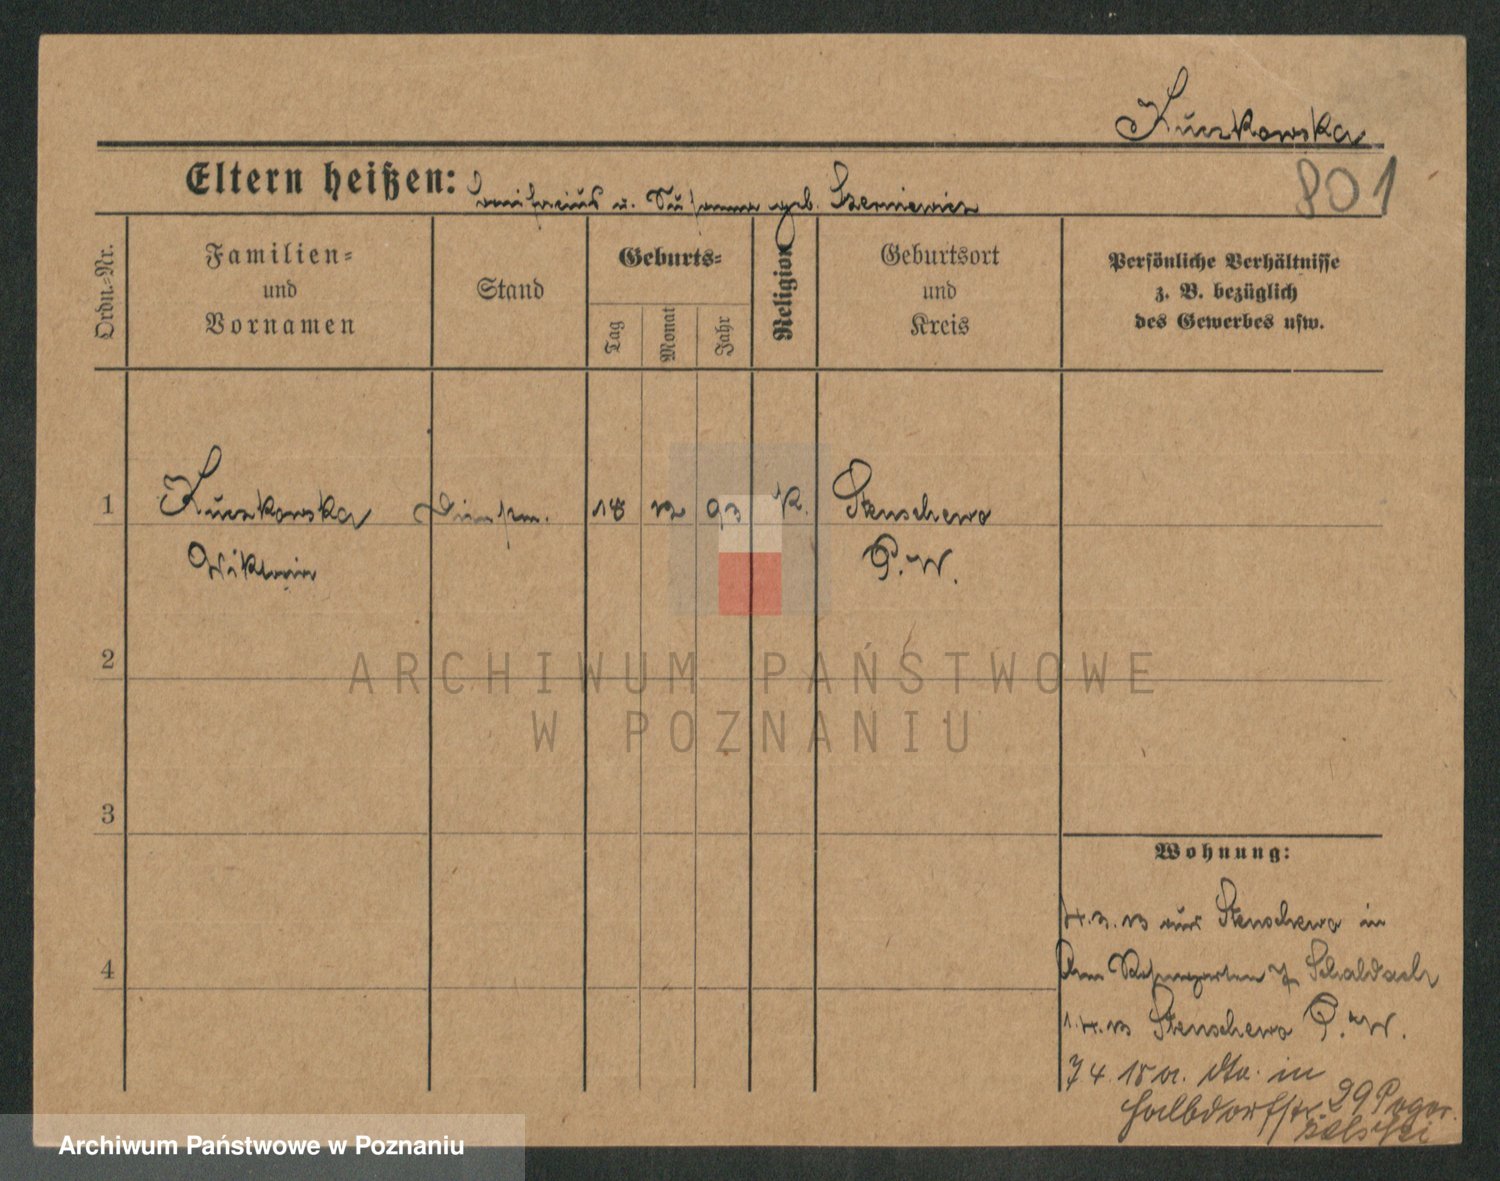 Kuczkowska
801
Eltern heißen: u. Susanna geb. Szerniewicz
Ordn.-Nr.
Familien-
und
Vornamen
Stand
Geburts-
Tag
Monat
Jahr
Religion
Geburtsort
und
Kreis
Persönliche Verhältnisse
z. B. bezüglich
des Gewerbes usw.
1
Kuczkowska
Dienstm.
18 12 93 K.
Stenschewo
P. W.
2
3
4
Wohnung:
aus Stenschewo in
Am 7 Schaldach
1.4.13 Stenschewo P. W.
7 4. 15 a. dto. in
Halbdorfstr. 29
ARCHIWUM PAŃSTWOWE
W POZNANIU
Archiwum Państwowe w Poznaniu